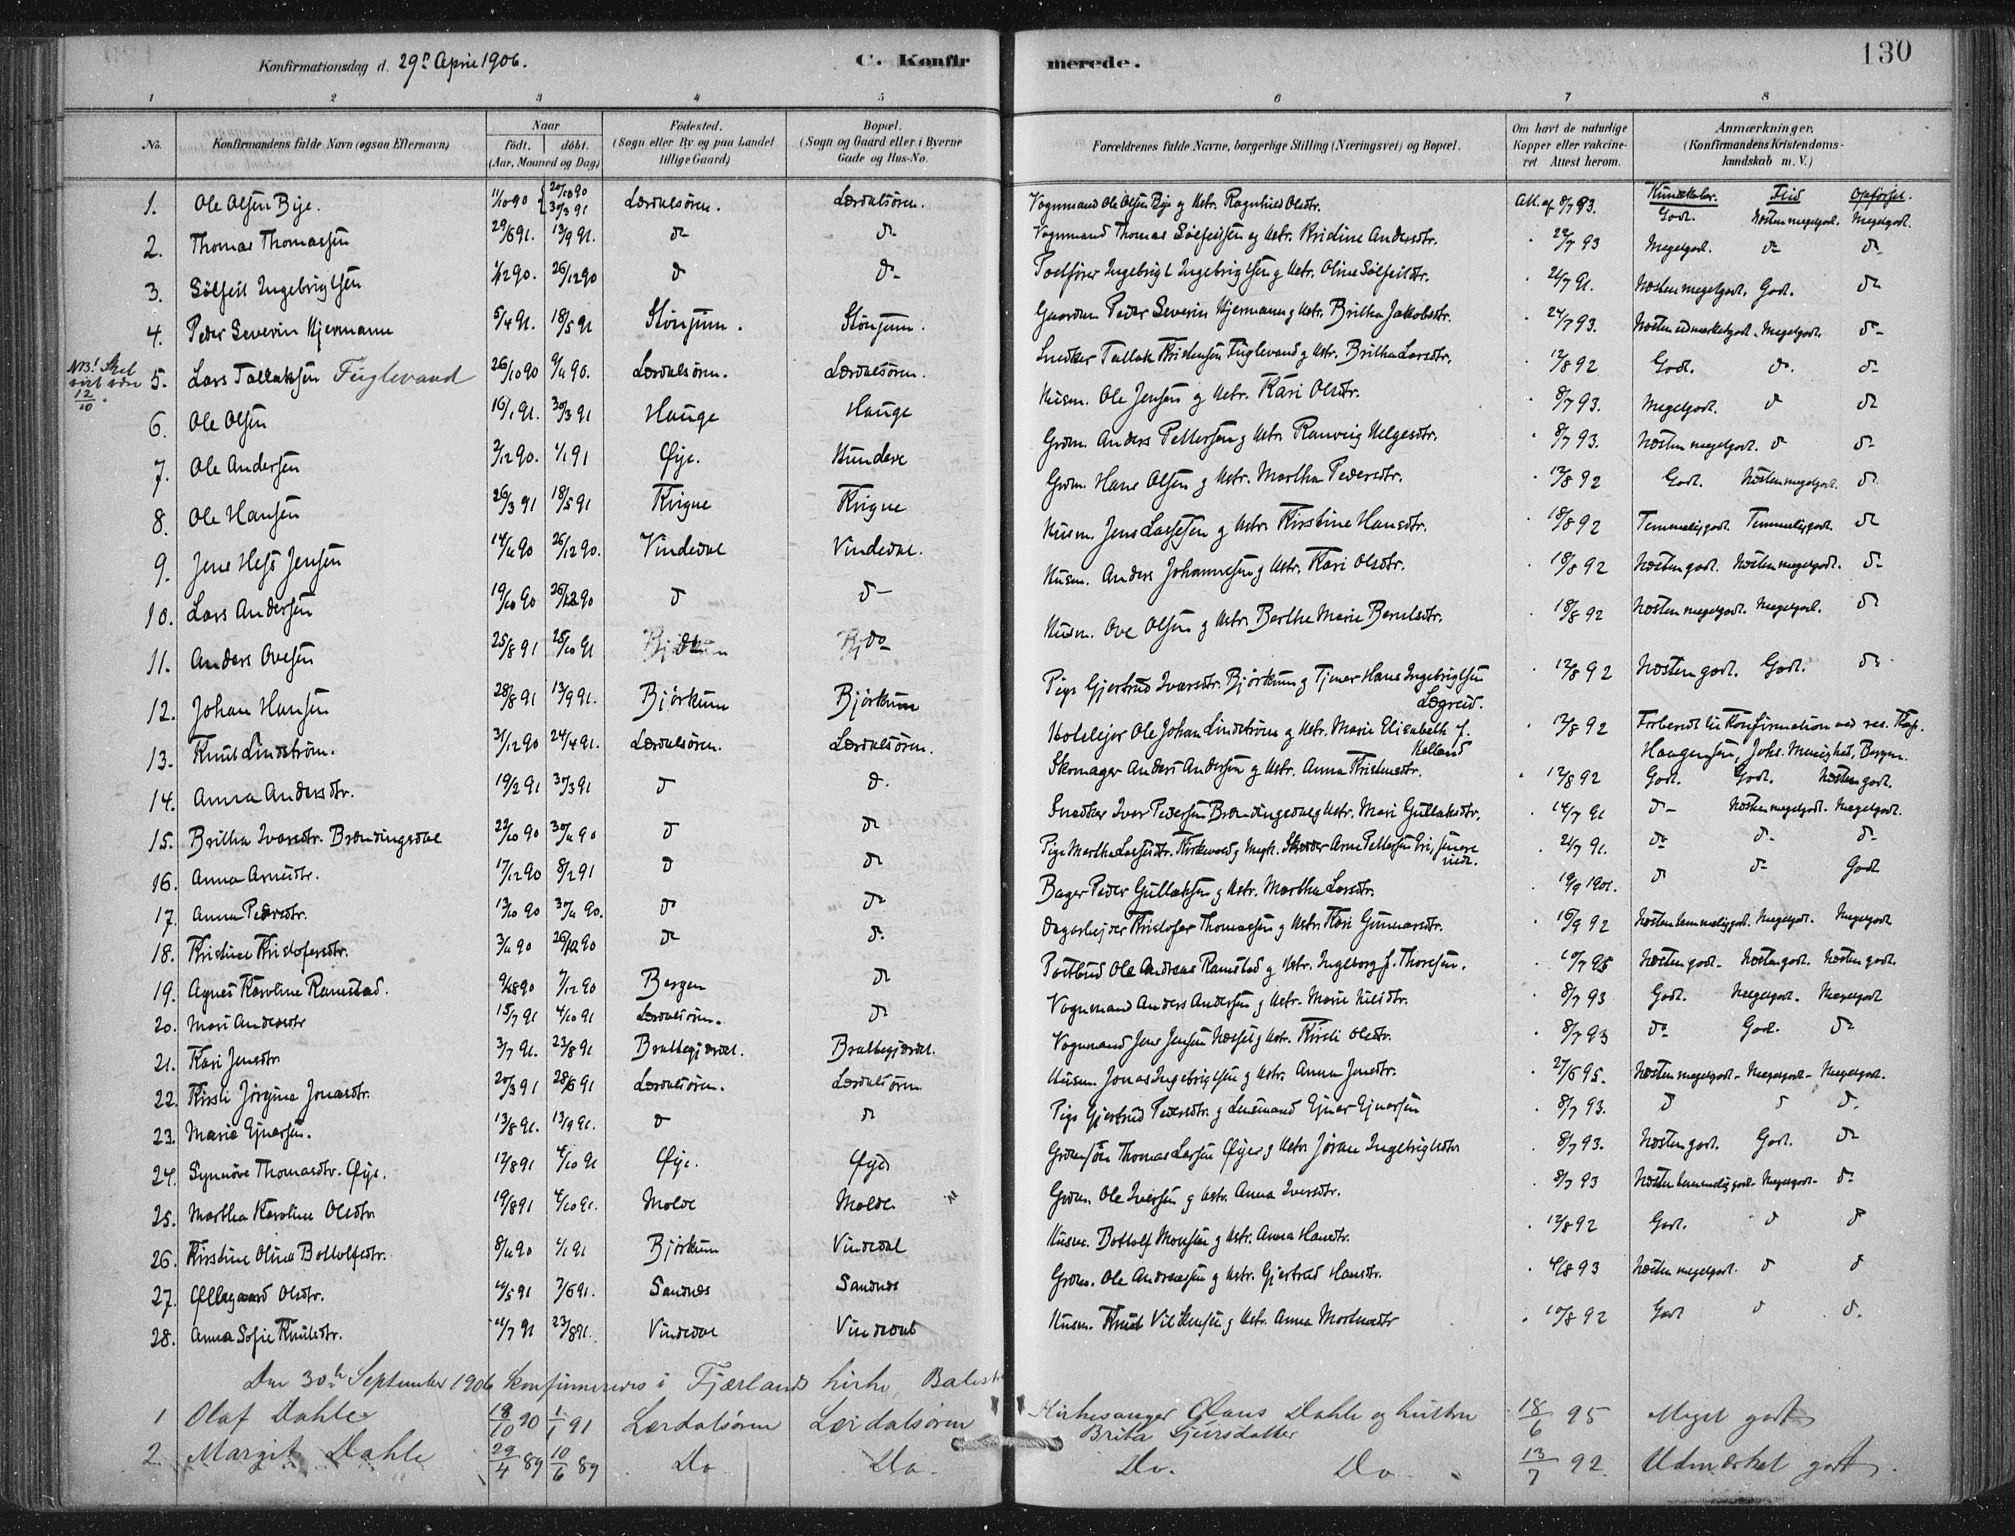 Konfirmationsdag d. 29de April 1906.
C. Konfir
merede.
130
1 2 3 4 5 6 7 8
No. Konfirmandens fulde Navn (ogsaa Efternavn) Naar født. døbt. (Aar, Maaned og Dag) Fødested. (Sogn eller By og paa Landet tillige Gaard) Bopæl. (Sogn og Gaard eller i Byerne Gade og Hus-No. Forældrenes fulde Navne, borgerlige Stilling (Næringsvei) og Bopæl. Om havt de naturlige Kopper eller vaccineret. Attest herom. Anmærkninger. (Konfirmandens Kristendomskundskab m. V.)
Kundskaber. Flid Opførsel.
1. Ole Olsen Bye. 11/10 90 20/10 90 30/3 91 Lærdalsøren. Lærdalsøren. Vognmand Ole Olsen Bye og Hstr. Ragnhild Olsdtr. Att. af 8/7 93. Godt. Næsten megetgodt. Megetgodt.
2. Thomas Thomassen 29/6 91. 13/9 91. do do Vognmand Thomas Sølfestsen og Hstr. Kridine Andersdtr. 22/7 93 Megetgodt. do do
3. Sølfest Ingebrigtsen 1/12 90. 26/12 90 do do Postfører Ingebrigt Ingebrigtsen og Hstr. Oline Sølfestdtr. 24/7 91. Næsten megetgodt. Godt. do
4. Peder Severin Hjermann 5/4 91. 18/5 91 Stønjum. Stønjum. Gaardm. Peder Severin Hjermann og Hstr. Britha Jakobsdtr. 24/7 93. Næsten udmærketgodt. Megetgodt. do
NB! Skal
12/10.
5. Lars Tallaksen Fuglevand 26/10 90 9/11 90. Lærdalsøren. Lærdalsøren. Snedker Tallak Kristensen Fuglevand og Hstr. Britha Larsdtr. 12/8 92 Godt. do. do
6. Ole Olsen 16/1 91. 30/3 91 Hauge Hauge Husm. Ole Jensen og Hstr. Kari Olsdtr. 8/7 93. Megetgodt. do do
7. Ole Andersen 3/12 90. 1/1 91 Øye. Hundere Grdm. Anders Pettersen og Hstr. Ranveig Helgesdtr. 8/7 93. Næsten megetgodt. do do
8. Ole Hansen 26/3 91 18/5 91 Kvigne Kvigne Grdm. Hans Olsen og Hstr. Martha Pedersdtr. 12/8 92 Godt. Næsten megetgodt. do
9. Jens Hess Jensen 14/11 90 26/12 90. Vindedal Vindedal. Husm. Jens Lassesen og Hstr. Kirstine Hansdtr. 18/8 92 Temmeliggodt. Temmeliggodt. do
10. Lars Andersen 19/10 90 26/12 90 do do Husm. Anders Johannesen og Hstr. Kari Olsdtr. 18/8 92 Næsten godt. Næsten megetgodt. do
11. Anders Ovesen 25/8 91 25/10 91 do do Husm. Ove Olsen og Hstr. Berthe Marie Berntsdtr. 18/8 92 Næsten megetgodt. Megetgodt. do
12. Johan Hansen 28/8 91 13/9 91. Bjørkum Bjørkum Pige Gjertrud Iversdtr. Bjørkum og Tjener Hans Ingebrigtsen Lægreid. 12/8 92 Næsten godt. Godt. do
13. Knut Lindstrøm. 31/12 90 24/4 91. Lærdalsøren. Lærdalsøren. Hotelejer Ole Johan Lindstrøm og Hstr. Marie Elisabeth f. Helland 12/8 92 Forberedt til Konfirmation ved res. Kap. Haugensen, Johs. Menighed, Bergen.
14. Anna Andersdtr. 19/2 91 30/3 91 do do. Skomager Anders Andersen og Hstr. Anna Kristensdtr. 12/8 92 Godt. Godt. Næsten godt.
15. Britha Iversdtr. Brændingsdal 22/10 90 30/11 90 do do Snedker Iver Pedersen Brændingsdal og Hstr. Mari Gullaksdtr. 14/7 91 do Næsten megetgodt. Megetgodt.
16. Anna Arnesdtr. 17/12 90 8/2 91 do do Pige Martha Lassesdtr. Kirkevold og Arne Pettersen Eri, 24/7 91. do do do
17. Anna Pedersdtr. 13/10 90 30/11 90. do do Bager Peder Gullaksen og Hstr. Martha Larsdtr. 19/9 1901. do do Godt
18. Kristine Kristofersdtr. 3/11 90 26/12 90 do do. Dagarbejder Kristofer Thomassen og Hstr. Kari Gunnarsdtr. 16/9 92 Næsten temmeliggodt. Megetgodt. Megetgodt
19. Agnes Karoline Ramstad. 9/8 90 7/12 90 Bergen do Postbud Ole Andreas Ramstad og Hstr. Ingeborg f. Thoresen. 10/7 95 Næsten godt. Næsten godt. Næsten godt.
20. Mari Andersdtr 15/7 91 4/10 91 Lærdalsøren. do Vognmand Anders Andersen og Hstr. Marie Nilsdtr. 8/7 93 Godt. Megetgodt. Megetgodt
21. Kari Jensdtr 3/7 91. 23/8 91 Brattegjærdet. Brattegjærdet. Vognmand Jens Jensen Hæsset og Hstr. Kirsti Olsdtr. 8/7 93 do Godt. do
22. Kirsti Jørgine Jonasdtr. 20/3 91 28/6 91 Lærdalsøren. Lærdalsøren Husm. Jonas Ingebrigtsen og Hstr. Anna Jensdtr. 27/6 95. Næsten megetgodt. Megetgodt. Megetgodt.
23. Marie Ejnarsen. 13/8 91. 13/9 91. do do Pige Gjertrud Pedersdtr. og Lensmand Ejner Ejnarsen 8/7 93. do do do.
24. Synnøve Thomasdtr. Øye. 12/8 91 4/10 91 Øye. Øye Grdmsøn Thomas Larsen Øye og Hstr. Jøran Ingebrigtsdtr 8/7 93. Næsten godt. Godt. do
25. Martha Karoline Olsdtr 19/8 91 4/10 91. Molde Molde. Grdm. Ole Iversen og Hstr. Anna Iversdtr. 8/7 93 Næsten temmeliggodt. Megetgodt. do
26. Kirstine Olina Bottolfsdtr. 8/11 90 4/1 91 Bjørkum Vindedal Husm. Bottolf Monsen og Hstr. Anna Hansdtr. 12/8 92 Godt. do do
27. Øllegaard Olsdtr. 11/5 91 7/6 91. Sandnes Sandnes Grdm. Ole Andreassen og Hstr. Gjertrud Hansdtr. 4/8 93 Næsten megetgodt. do do
28. Anna Sofie Knutsdtr. 11/7 91 23/8 91. Vindedal Vindedal Husm. Knut Vilhemsen og Hstr. Anna Mortensdtr 10/8 92 Godt do do.
Den 30te September 1906 konfirmeredes i Fjærlands kirke, Balest
1 Olaf Dahle 18/10 90 1/1 91 Lærdalsøren Lærdalsøren Kirkesanger Claus Dahle og hustru Brita Sjursdatter 18/6 95 Meget godt
2. Margit Dahle 29/4 89 10/6 89 Do Do. Do. Do. 13/7 92. Udmærket godt.